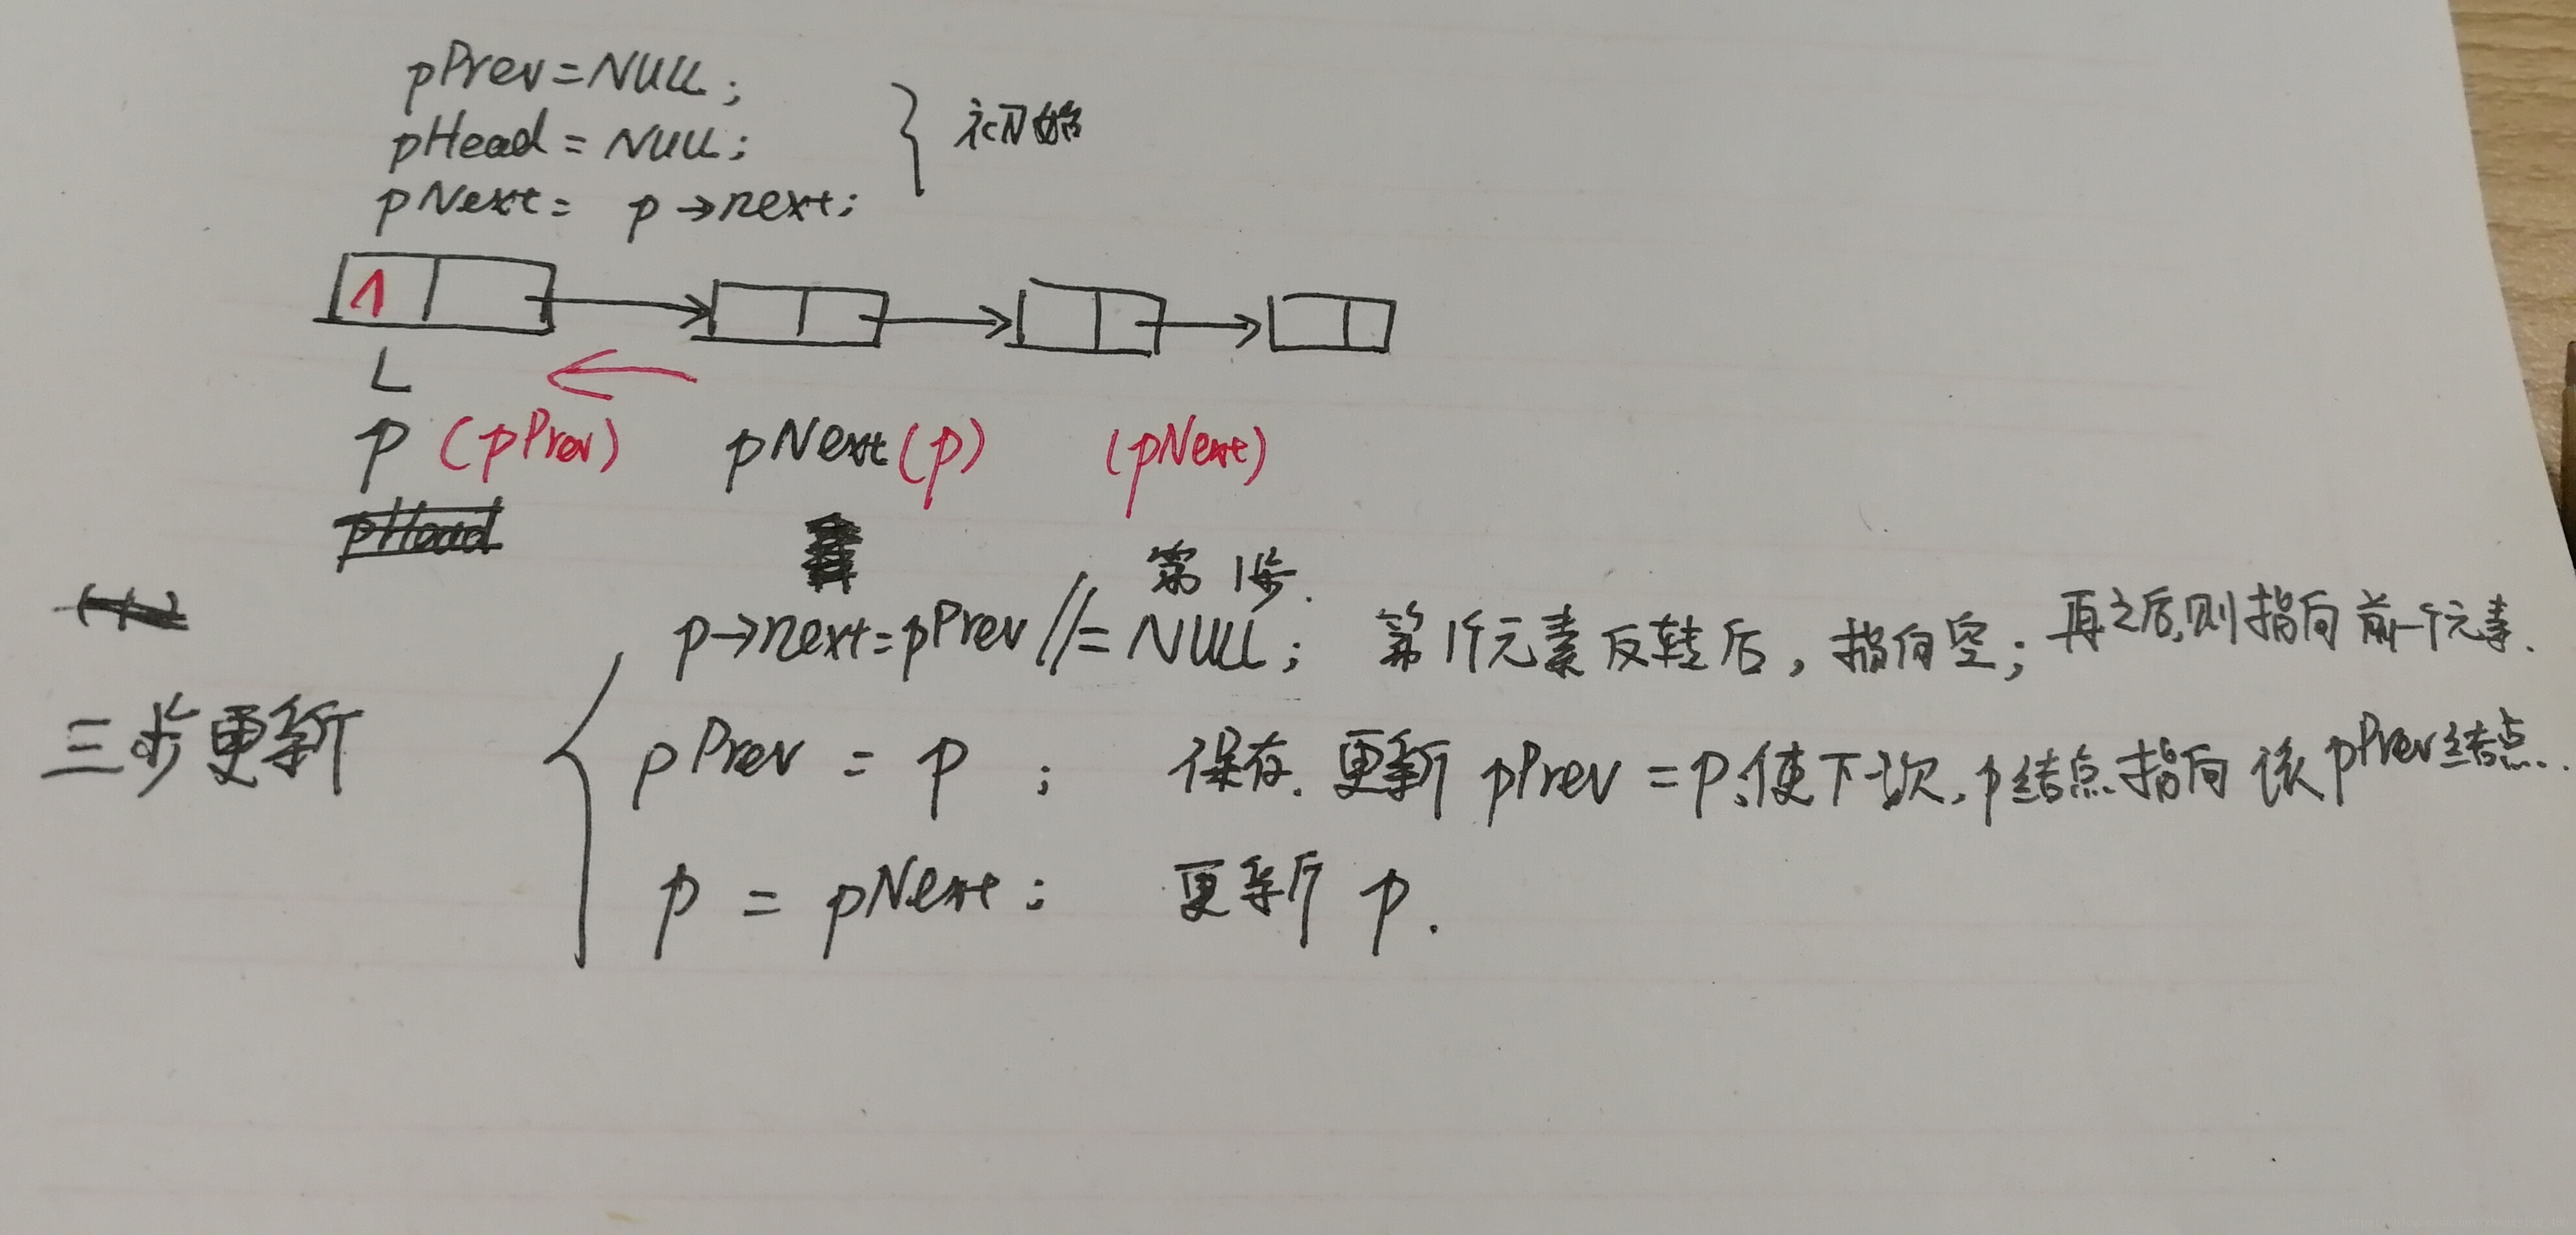 pPrev=NULL;
pHead=NULL;
pNext= p→next;
初始
∧
L
p (pPrev) pNext (p) (pNext)
pHead
第1步.
p→next=pPrev //= NULL; 第1个元素反转后，指向空; 再之后,则指向前一个元素.
三步更新
pPrev = p ; 保存. 更新 pPrev = p,使下次,p结点指向该pPrev结点.
p = pNext; 更新 p.